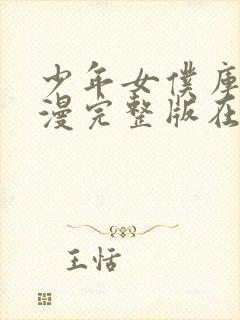 少年女仆库
漫完整版在
王恬